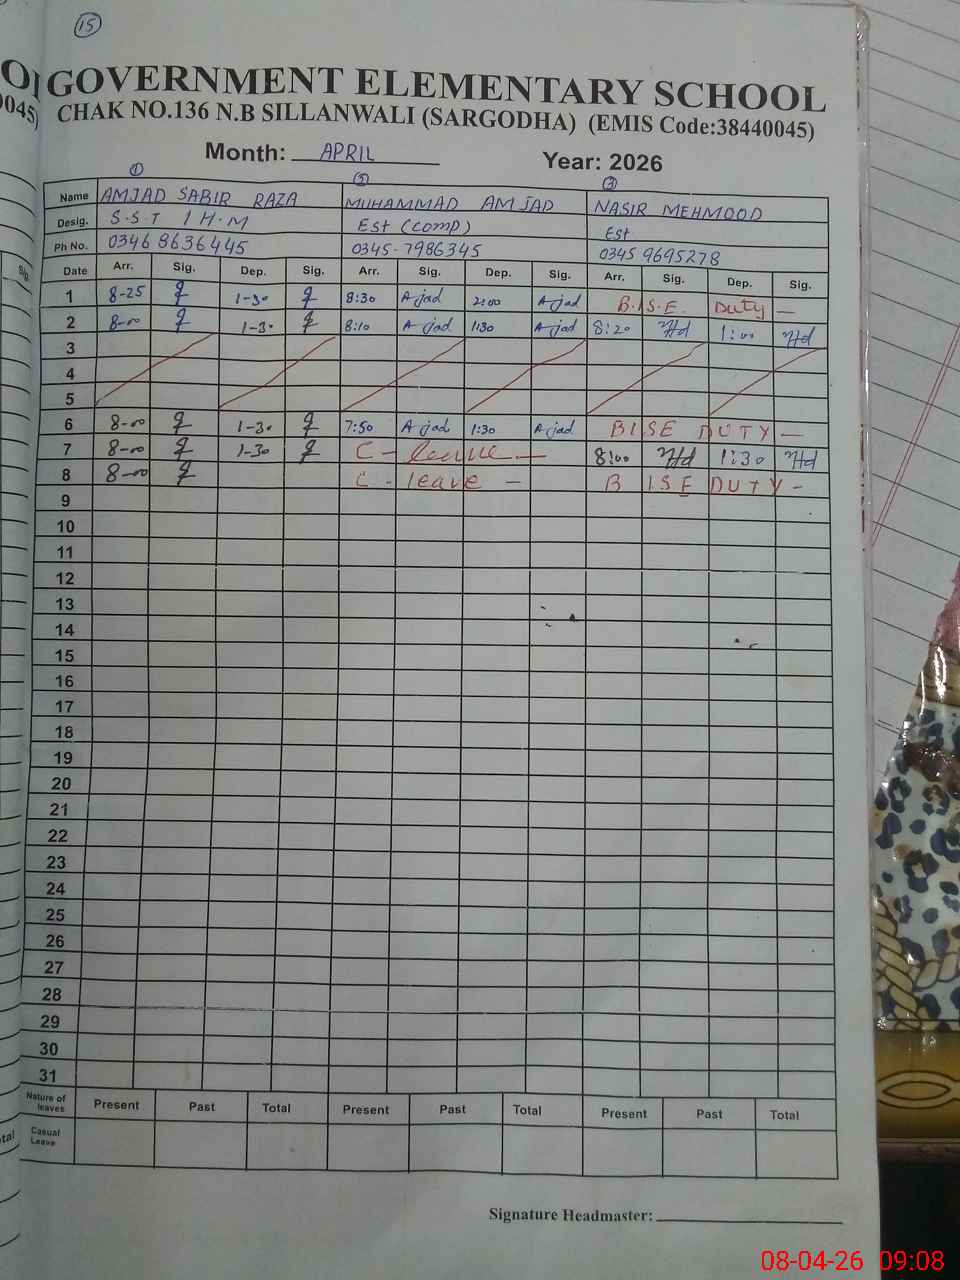 15
GOVERNMENT ELEMENTARY SCHOOL
0045) CHAK NO.136 N.B SILLANWALI (SARGODHA) (EMIS Code:38440045)
Month: APRIL Year: 2026
1 2 3
Name AMJAD SABIR RAZA MUHAMMAD AMJAD NASIR MEHMOOD
Desig. S.S.T / H.M Est (comp) Est
Ph No. 0346 8636445 0345-7986345 0345 9695278
Date Arr. Sig. Dep. Sig. Arr. Sig. Dep. Sig. Arr. Sig. Dep. Sig.
1 8-25 1-30 8:30 Ajad 2:00 Ajad B.I.S.E. Duty —
2 8-00 1-30 8:10 Ajad 1:30 Ajad 8:20 1:00
3
4
5
6 8-00 1-30 7:50 Ajad 1:30 Ajad BISE DUTY —
7 8-00 1-30 C - leave — 8:00 1:30
8 8-00 C - leave — BISE DUTY -
9
10
11
12
13
14
15
16
17
18
19
20
21
22
23
24
25
26
27
28
29
30
31
Nature of leaves Present Past Total Present Past Total Present Past Total
Casual Leave
Signature Headmaster:
08-04-26 09:08